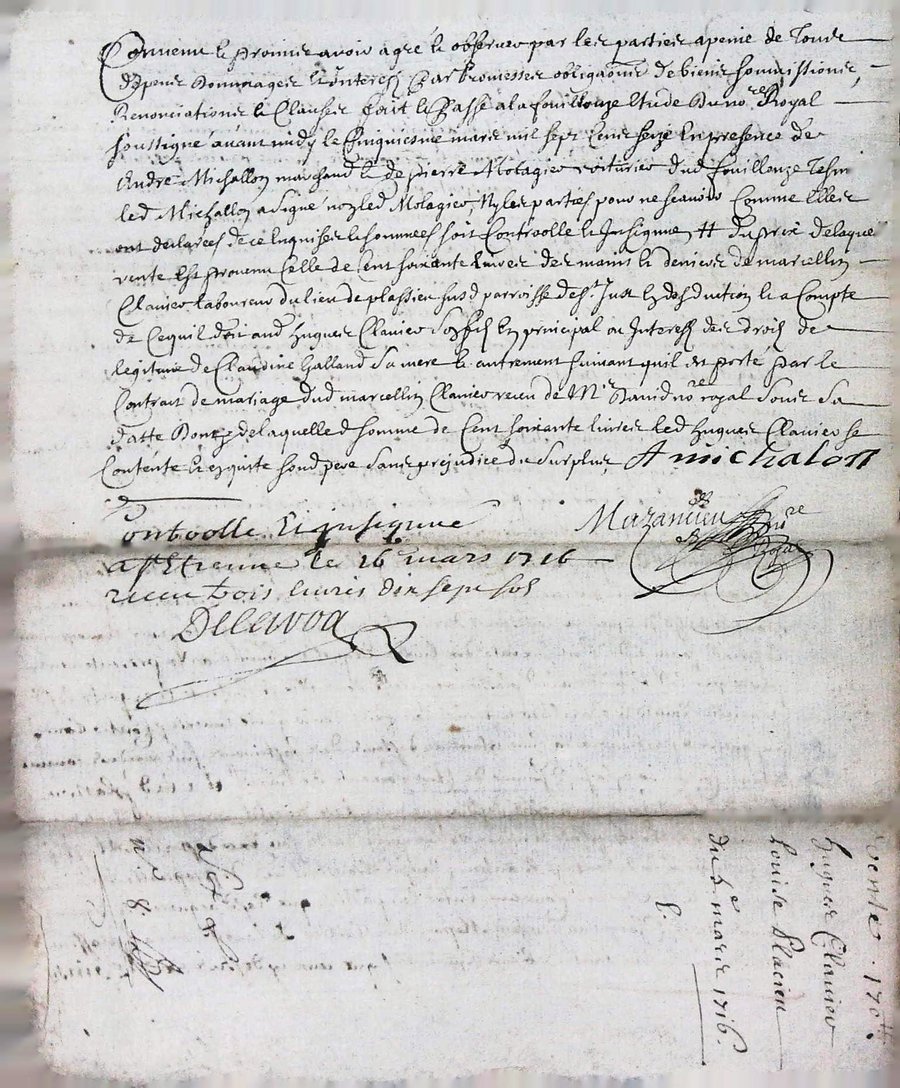 Convenu et promis avoir agreé et observer par les parties a peine de Tous
depens dommages et interest Par promesses obligaons de biens soumissions,
Renonciations et Clauses fait et Passé a la fouillouze Etude du nore Royal
soussigné avant midy le Cinquiesme mars mil sept Cens seize En presence de
André Michallon marchand et de pierre Motagier voiturier dud fouillouze Tesm
led Michallon a signé non led Motagier, Ny les parties pour ne scavoir Comme Elles
ont declarées de ce Enquises et sommées soit Controolle et Insignue, # du prix de laque
vente Est provenu Celle de Cent soixante livres des mains et deniers de marcellin
Clavier laboureur du lieu de plassieu susd parroisse de st Just En desduction et a Compte
de Ce quil doit aud hugues Clavier son fils En principal ou Interest des droits de
legitime de Claudine Galland sa mere et autrement suivant quil est porté par le
Contrait de mariage dud marcellin Clavier receu de Mr David nore royal sous sa
datte Donc de laquelle d somme de Cent soixante livres led hugues Clavier se
Contente Et en quite sond pere sans prejudice du surplus A michalon
Mazancieu nore Royal
Controollé Et insigniué
a st Etienne le 16 mars 1716
receu trois livres dix sept sols
Delavoa
vente. 170tt
hugues Clavier
Louise Placieu
du 5e mars 1716.
n 8